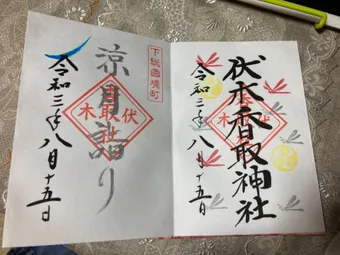 伏木香取神社
令和三年八月十五日
下総國境町
涼月詣り
伏木
香取社
令和三年八月十五日